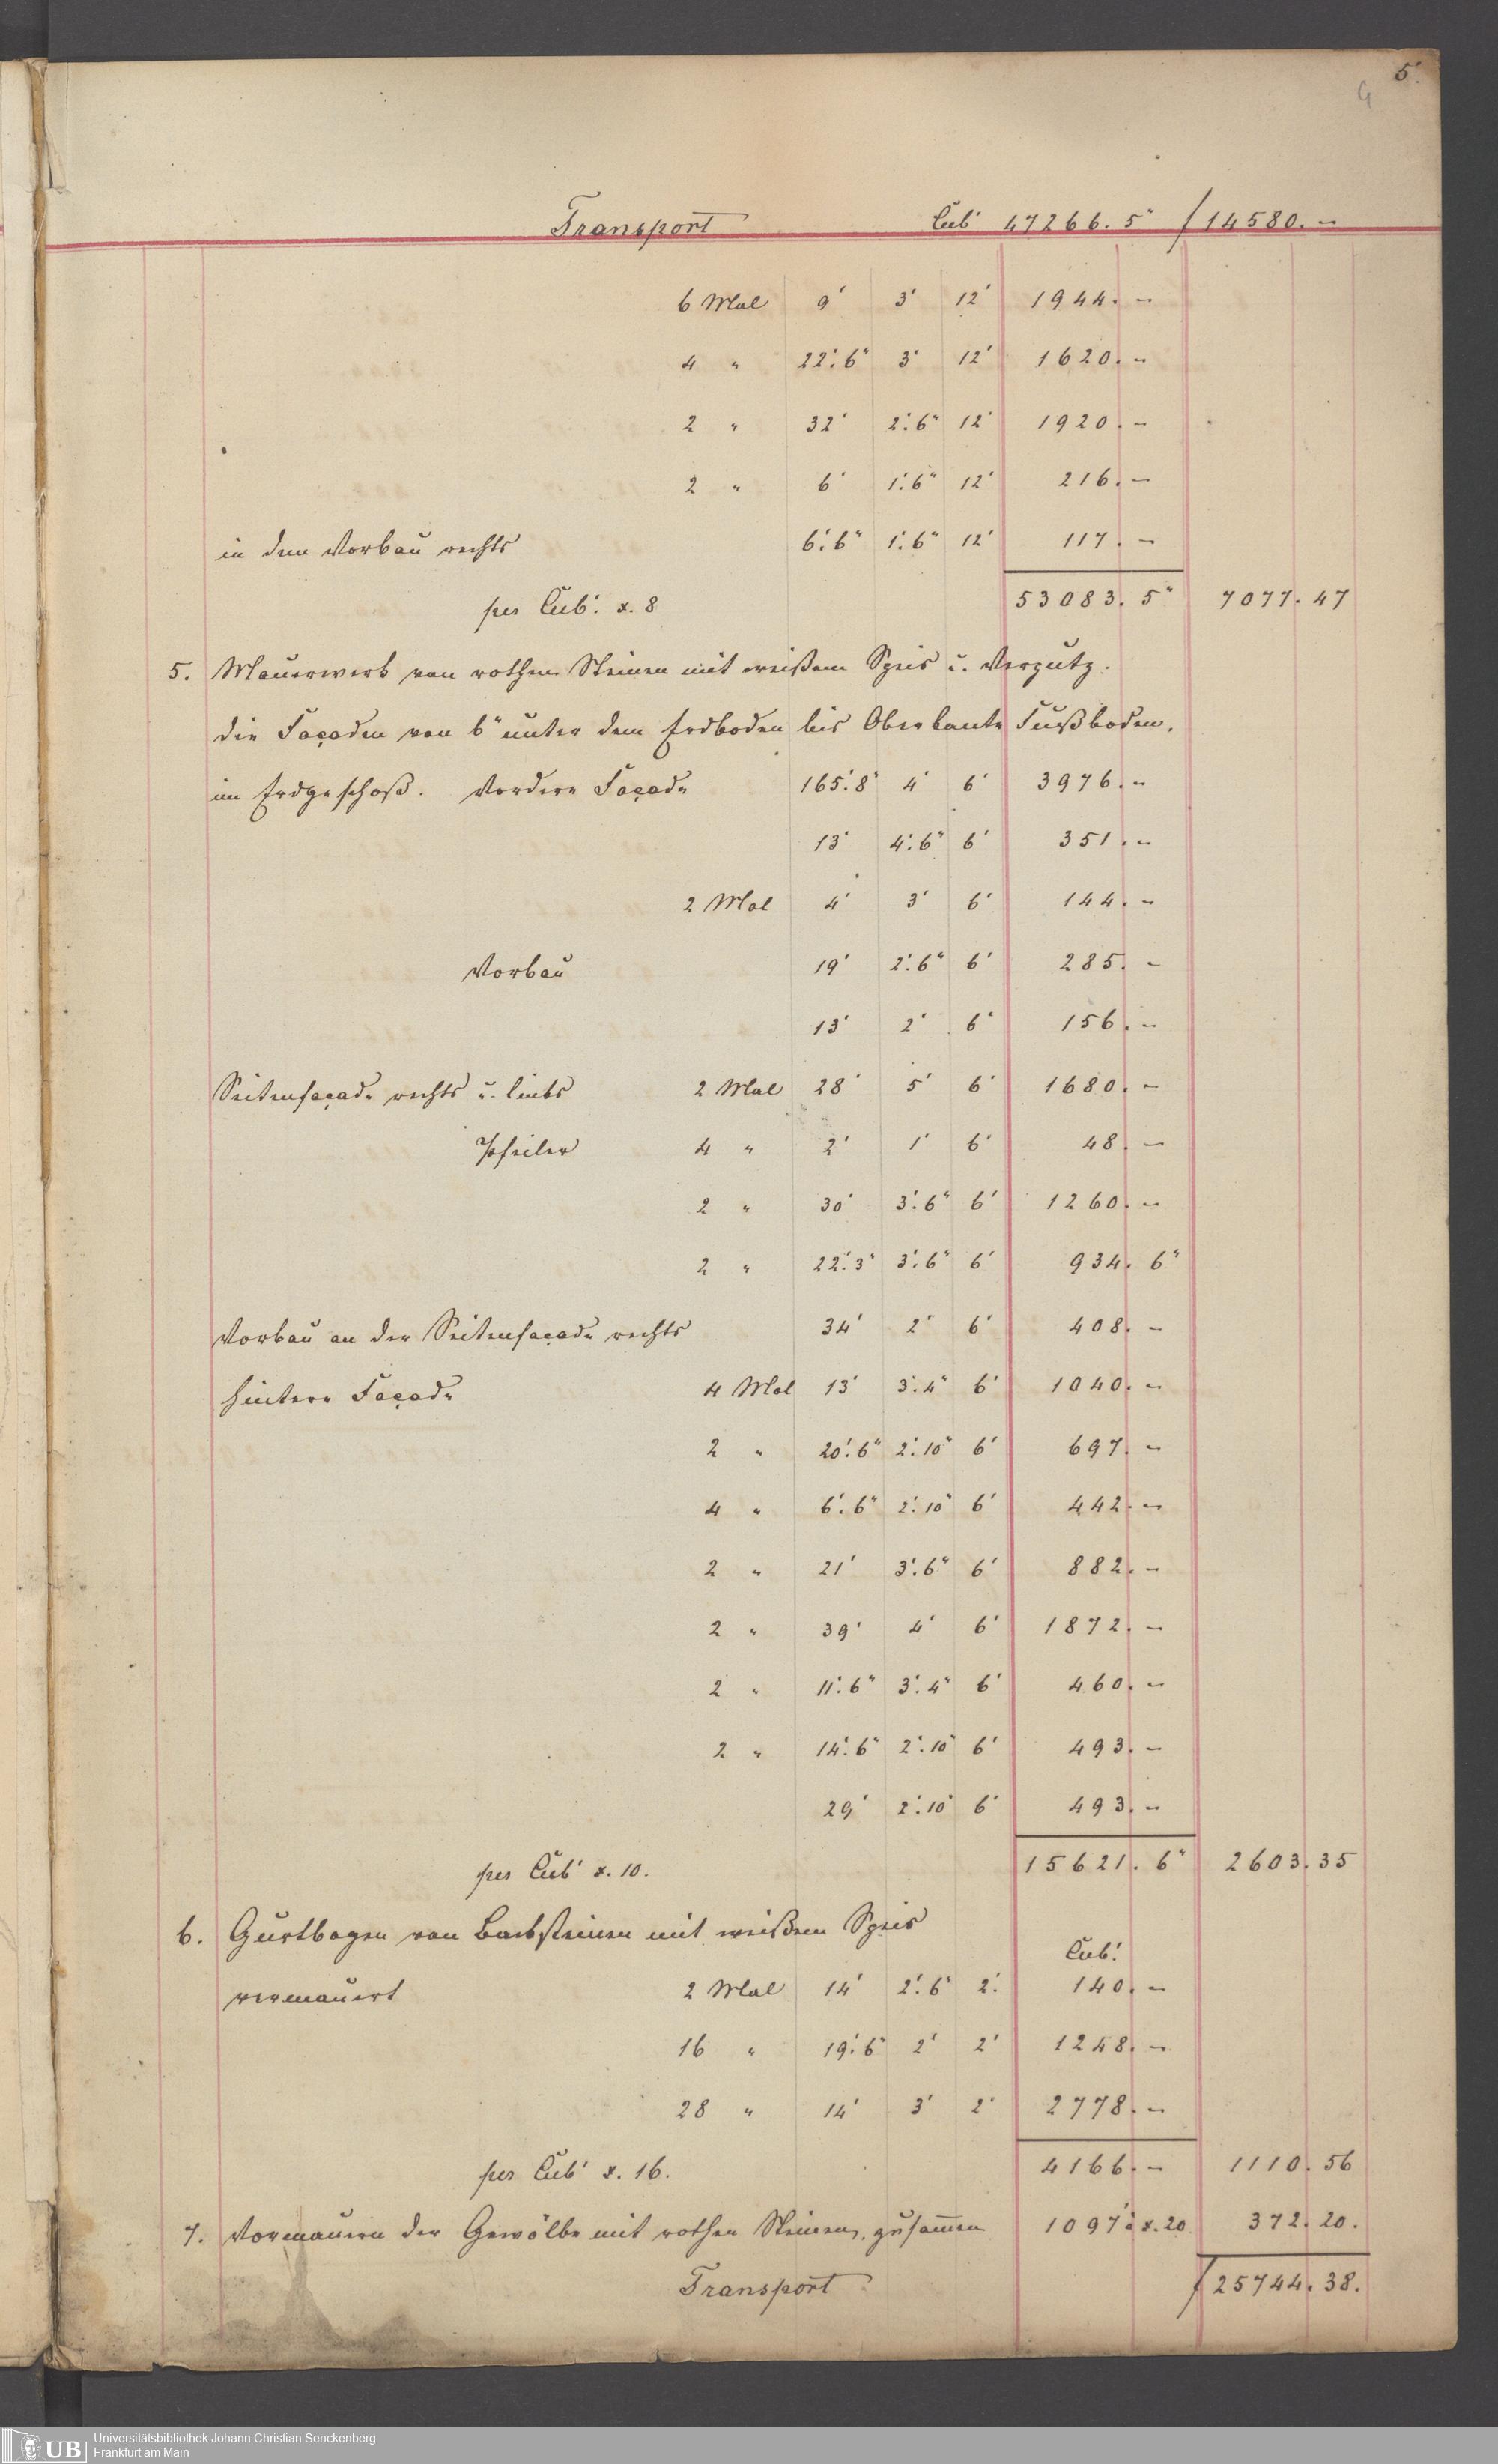 5.
4
Transport Cub' 47266. 5" f 14580. –
6 Mal 9' 3' 12' 1944. –
4 " 22'. 6" 3' 12' 1620. –
2 " 32' 2'. 6" 12' 1920. –
2 " 6' 1'. 6" 12' 216. –
in dem Vorbau rechts 6'. 6" 1'. 6" 12' 117. –
per Cub'. x. 8 53083. 5" 7077. 47
5. Mauerwerk von rothen Steinen mit weißem Speis u. Verputz.
die Façaden von 6" unter dem Erdboden bis Oberkante Fußboden,
im Erdgeschoß. Vordere Façade 165'. 8" 4' 6' 3976. –
13' 4'. 6" 6' 351. –
2 Mal 4' 3' 6' 144. –
Vorbau 19' 2'. 6" 6' 285. –
13' 2' 6' 156. –
Seitenfaçade rechts u. links 2 Mal 28' 5' 6' 1680. –
Pfeiler 4 " 2' 1' 6' 48. –
2 " 30' 3'. 6" 6' 1260. –
2 " 22'. 3" 3'. 6" 6' 934. 6"
Vorbau an der Seitenfaçade rechts 34' 2' 6' 408. –
hintere Façade 4 Mal 13' 3'. 4" 6' 1040. –
2 " 20'. 6" 2'. 10" 6' 697. –
4 " 6'. 6" 2'. 10" 6' 442. –
2 " 21' 3'. 6" 6' 882. –
2 " 39' 4' 6' 1872. –
2 " 11'. 6" 3'. 4" 6' 460. –
2 " 14'. 6" 2'. 10" 6' 493. –
29' 2'. 10" 6' 493. –
per Cub' x. 10. 15621. 6" 2603. 35
6. Gurtbogen von Backsteinen mit weißem Speis
Cub'.
vermauert 2 Mal 14' 2'. 6" 2'. 140. –
16 " 19'. 6" 2' 2' 1248. –
28 " 14' 3' 2' 2778. –
per Cub' x. 16. 4166. – 1110. 56
7. Vormauern der Gewölbe mit rothen Steinen, zusammen 1097' à x. 20 372. 20.
Transport f 25744. 38.
UB Universitätsbibliothek Johann Christian Senckenberg
Frankfurt am Main